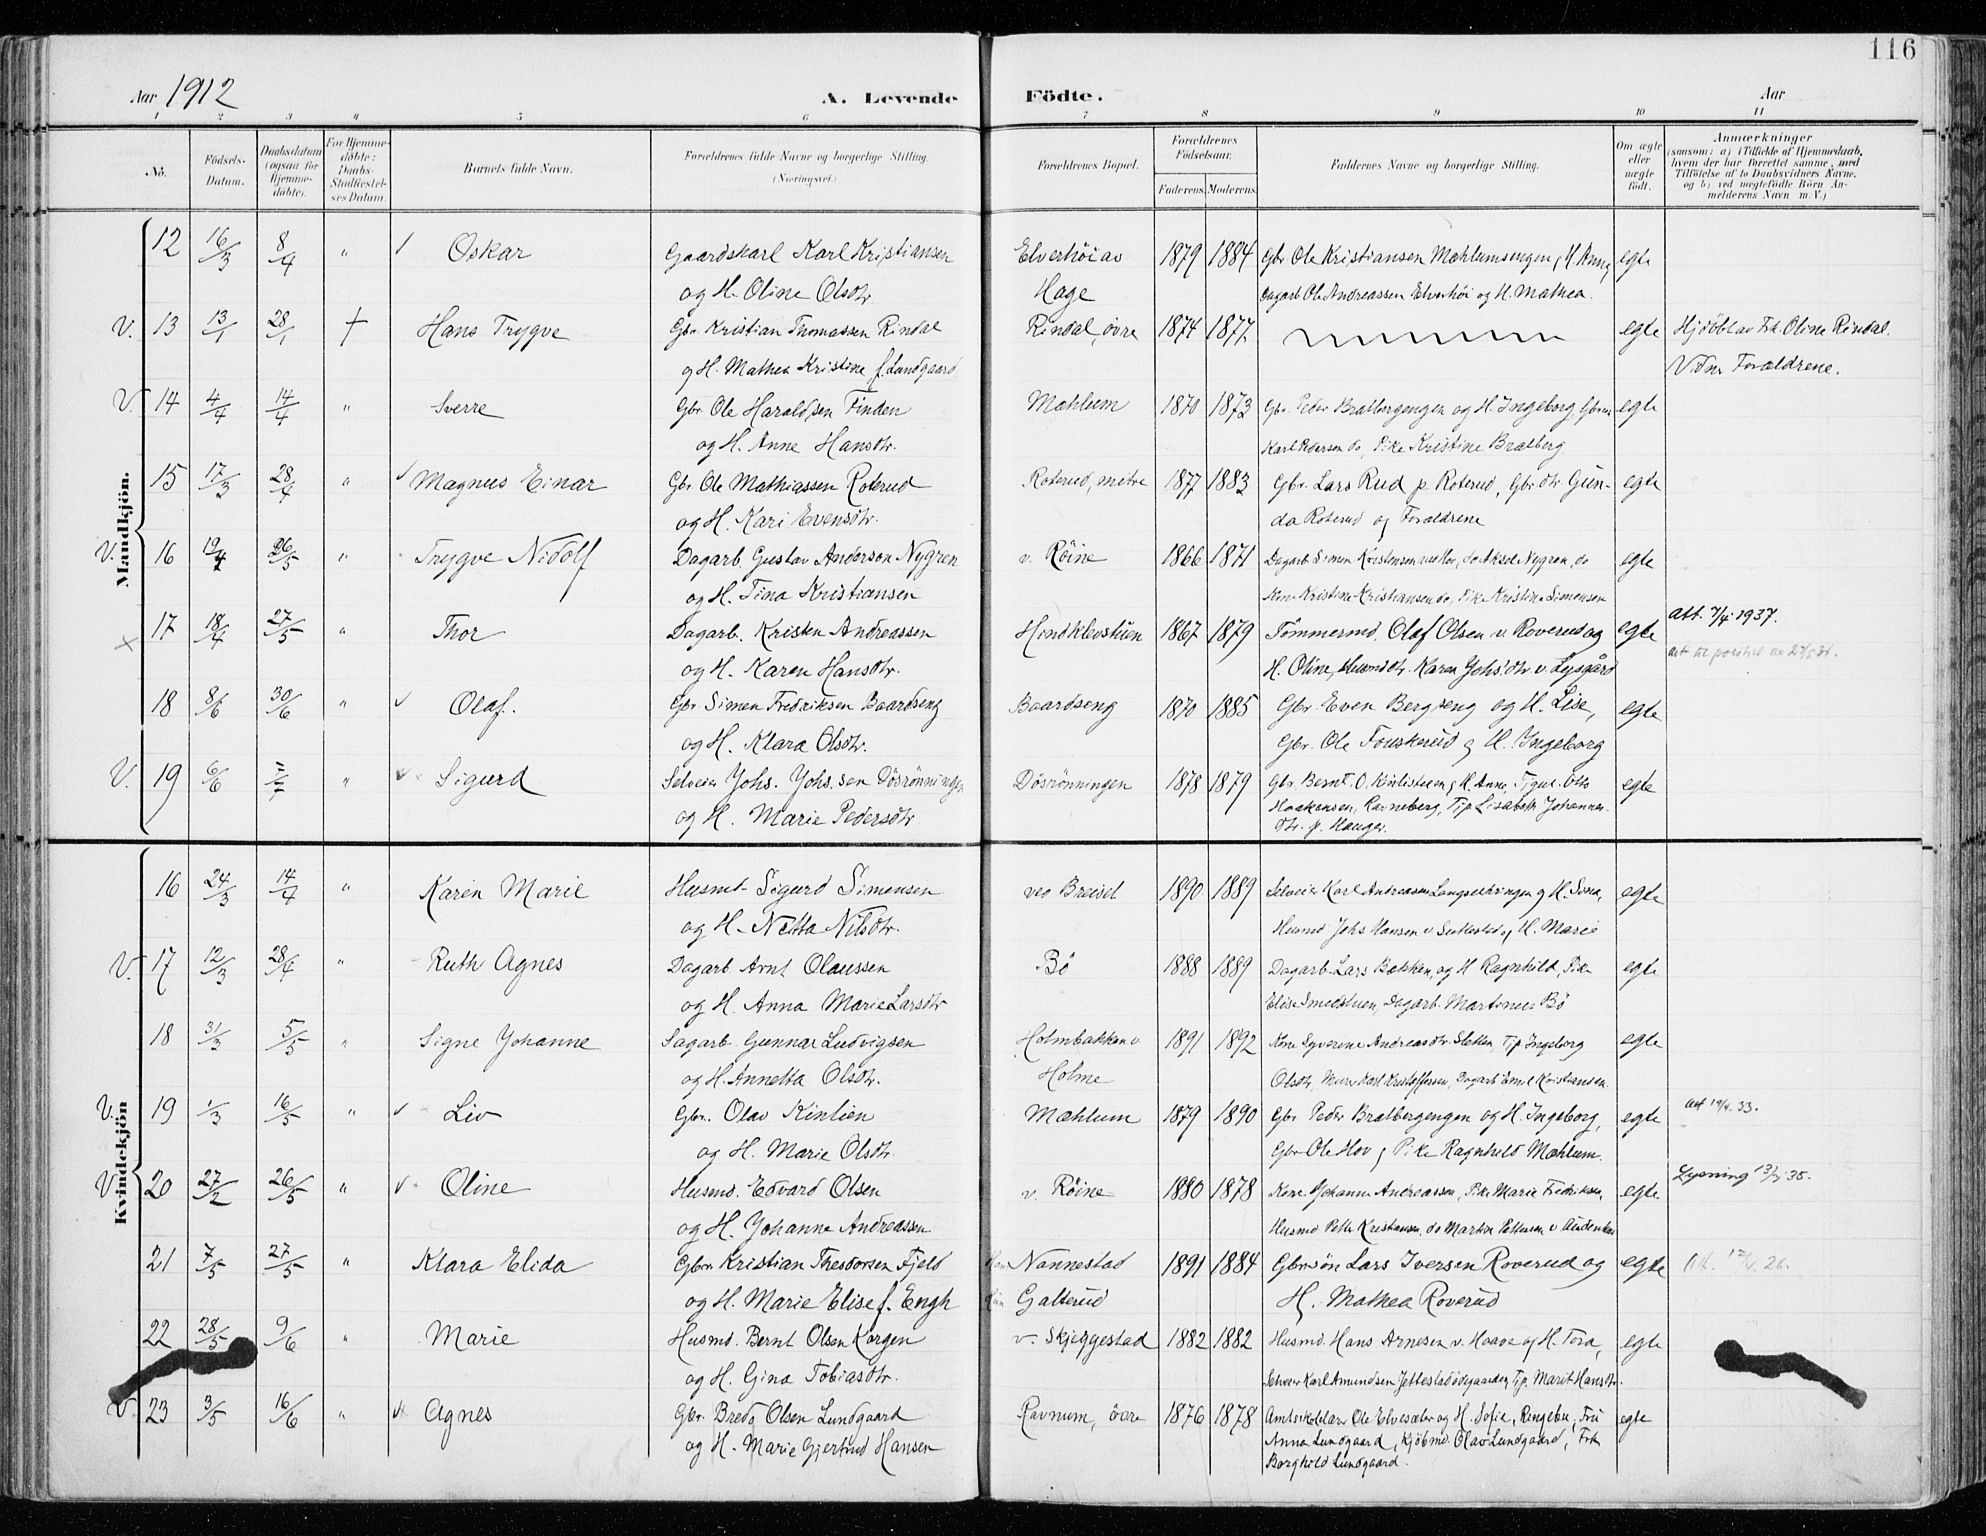 116
Aar 1912 A. Levende Födte. Aar
1 2 3 4 5 6 7 8 9 10 11
No. Födsels-Datum. Daabsdatum (ogsaa for Hjemmedöbte). For Hjemmedöbte: Daabs-Stadfæstelses Datum. Barnets fulde Navn. Forældrenes fulde Navne og borgerlige Stilling. (Næringsvei.) Forældrenes Bopæl. Forældrenes Födselsaar. Faderens. Moderens. Faddernes Navne og borgerlige Stilling. Om ægte eller uægte födt. Anmærkninger
(saasom: a) i Tilfælde af Hjemmedaab, hvem der har forrettet samme, med Tilföielse af to Daabsvidners Navne. og b) ved uegtefödte Börn Anmelderens Navn m. V.)
Mandkjön.
12 16/3 8/4 " Oskar Gaardskarl Karl Kristiansen Elverhöi av 1879 1884 Gbr Ole Kristiansen Mæhlumsengen, H. Anne egte
og H. Oline Olsdtr. Hage Dagarb Ole Andreassen Elverhöi og H. Mathea.
V. 13 13/1 28/1 Hans Trygve Gbr Kristian Thomassen Rindal Rindal, övre 1874 1877 egte Hjdöbt av Frk. Oline Rindal.
og H. Mathea Kristine f. Lundgaard Vidn. Forældrene.
V. 14 4/4 14/4 " Sverre Gbr. Ole Haraldsen Finden Mæhlum 1870 1873 Gbr. Peder Bratbergengen og H. Ingeborg, egte
og H. Anne Hansdtr. Karl Pedersen do, Pike Kristine Bratberg.
15 17/3 28/4 " Magnus Einar Gbr Ole Mathiassen Roterud Roterud, mitre 1877 1883 Gbr. Lars Rud p Roterud, Gbr.dtr Gun- egte
og H. Kari Evensdtr. da Roterud og Forældrene
V. 16 19/4 26/5 " Trygve Nidolf Dagarb. Gustav Anderson Nygren v. Röine 1866 1871 Dagarb Simen Kristensen, do Aksel Nygren, do egte
og H. Tina Kristiansen Kone Kristine Kristiansen do, Pike Kristine Simensen
17 18/4 27/5 " Thor Dagarb. Kristen Andreassen Hindklevstuen 1867 1879 Tömmermd. Olaf Olsen v. Roverud og egte Att. 7/4 1937.
og H. Karen Hansdtr. H. Oline, Karen Johs.dtr v. Lysgård
18 8/6 30/6 " Olaf. Gbr Simen Fredriksen Baardseng Baardseng 1870 1885 Gbr. Even Bergseng og H. Lise, egte
og H. Klara Olsdtr. Gbr. Ole Fouskerud og H. Ingeborg
V. 19 6/6 " Sigurd Selveier Johs. Johs.sen Dösrönningen Dösrönningen 1878 1879 Gbr. Bernt O. og H. Anne, Otto egte
og H. Marie Pedersdtr Haakensen, Ravneberg, Tjp Lisabeth Johannes-
dtr. p. Hauger.
Kvindekjön
16 24/3 14/4 " Karen Marie Husmd. Sigurd Simensen ved Breisel 1890 1889 Selveier Karl Andreassen og H. egte
og H. Netta Nilsdtr. Husmd Johs Hansen v og H. Marie
V. 17 12/3 28/4 " Ruth Agnes Dagarb Arnt Olaussen Bö 1888 1889 Dagarb. Lars Bakken, og H Ragnhild, Pike egte
og H. Anna Marie Larsdtr Elise Smedstuen, Dagarb. Martinus Bö
18 31/3 5/5 " Signe Johanne Sagarb. Gunnar Ludvigsen Holmbakken v. 1891 1892 Kone Syverine Andreasdtr. Sletten, Tjp Ingeborg egte
og H. Annetta Olsdtr. Holme Olsdtr, Murer Karl Kristoffersen, Dagarb Emil Kristiansen.
V. 19 1/3 16/5 " Liv Gbr. Olav Kinlien Mæhlum 1879 1890 Gbr Peder Bratbergengen og H. Ingeborg, egte Att 19/4. 33.
og H. Marie Olsdtr. Gbr Ole Hov, Pike Ragnhild Mæhlum.
V. 20 27/2 26/5 " Oline Husmd. Edvard Olsen v. Röine 1880 1878 Kone Johanne Andreassen, Pike Marie Fredriksen, egte Lysning 13/7 35.
og H. Johanne Andreassen Husmd Peter Kristiansen, do Martin Pettersen v
21 7/5 27/5 " Klara Elida Gbr. Kristian Theodorsen Fjeld Nannestad 1891 1884 Gbrsön Lars Iversen Roverud og egte
og H. Marie Elise f. Engh Galterud H. Mathea Roverud
22 28/5 9/6 " Marie Husmd. Bernt Olsen Korgen v. Skjeggestad 1882 1882 Husmd. Hans Arnesen v. Haave og H. Tora, egte
og H. Gina Tobiasdtr. Selveier Karl Amundsen Tjp. Marit Hansdtr.
V. 23 3/5 16/6 " Agnes Gbr. Brede Olsen Lundgaard Ravnum, övre 1876 1878 Amtskolelær Ole Elvesæter og H. Sofie, Ringebu, Fru egte
og H. Marie Gjertrud Hansen Anna Lundgaard, Kjöbmd. Olav Lundgaard, Frk
Borghild Lundgaard.